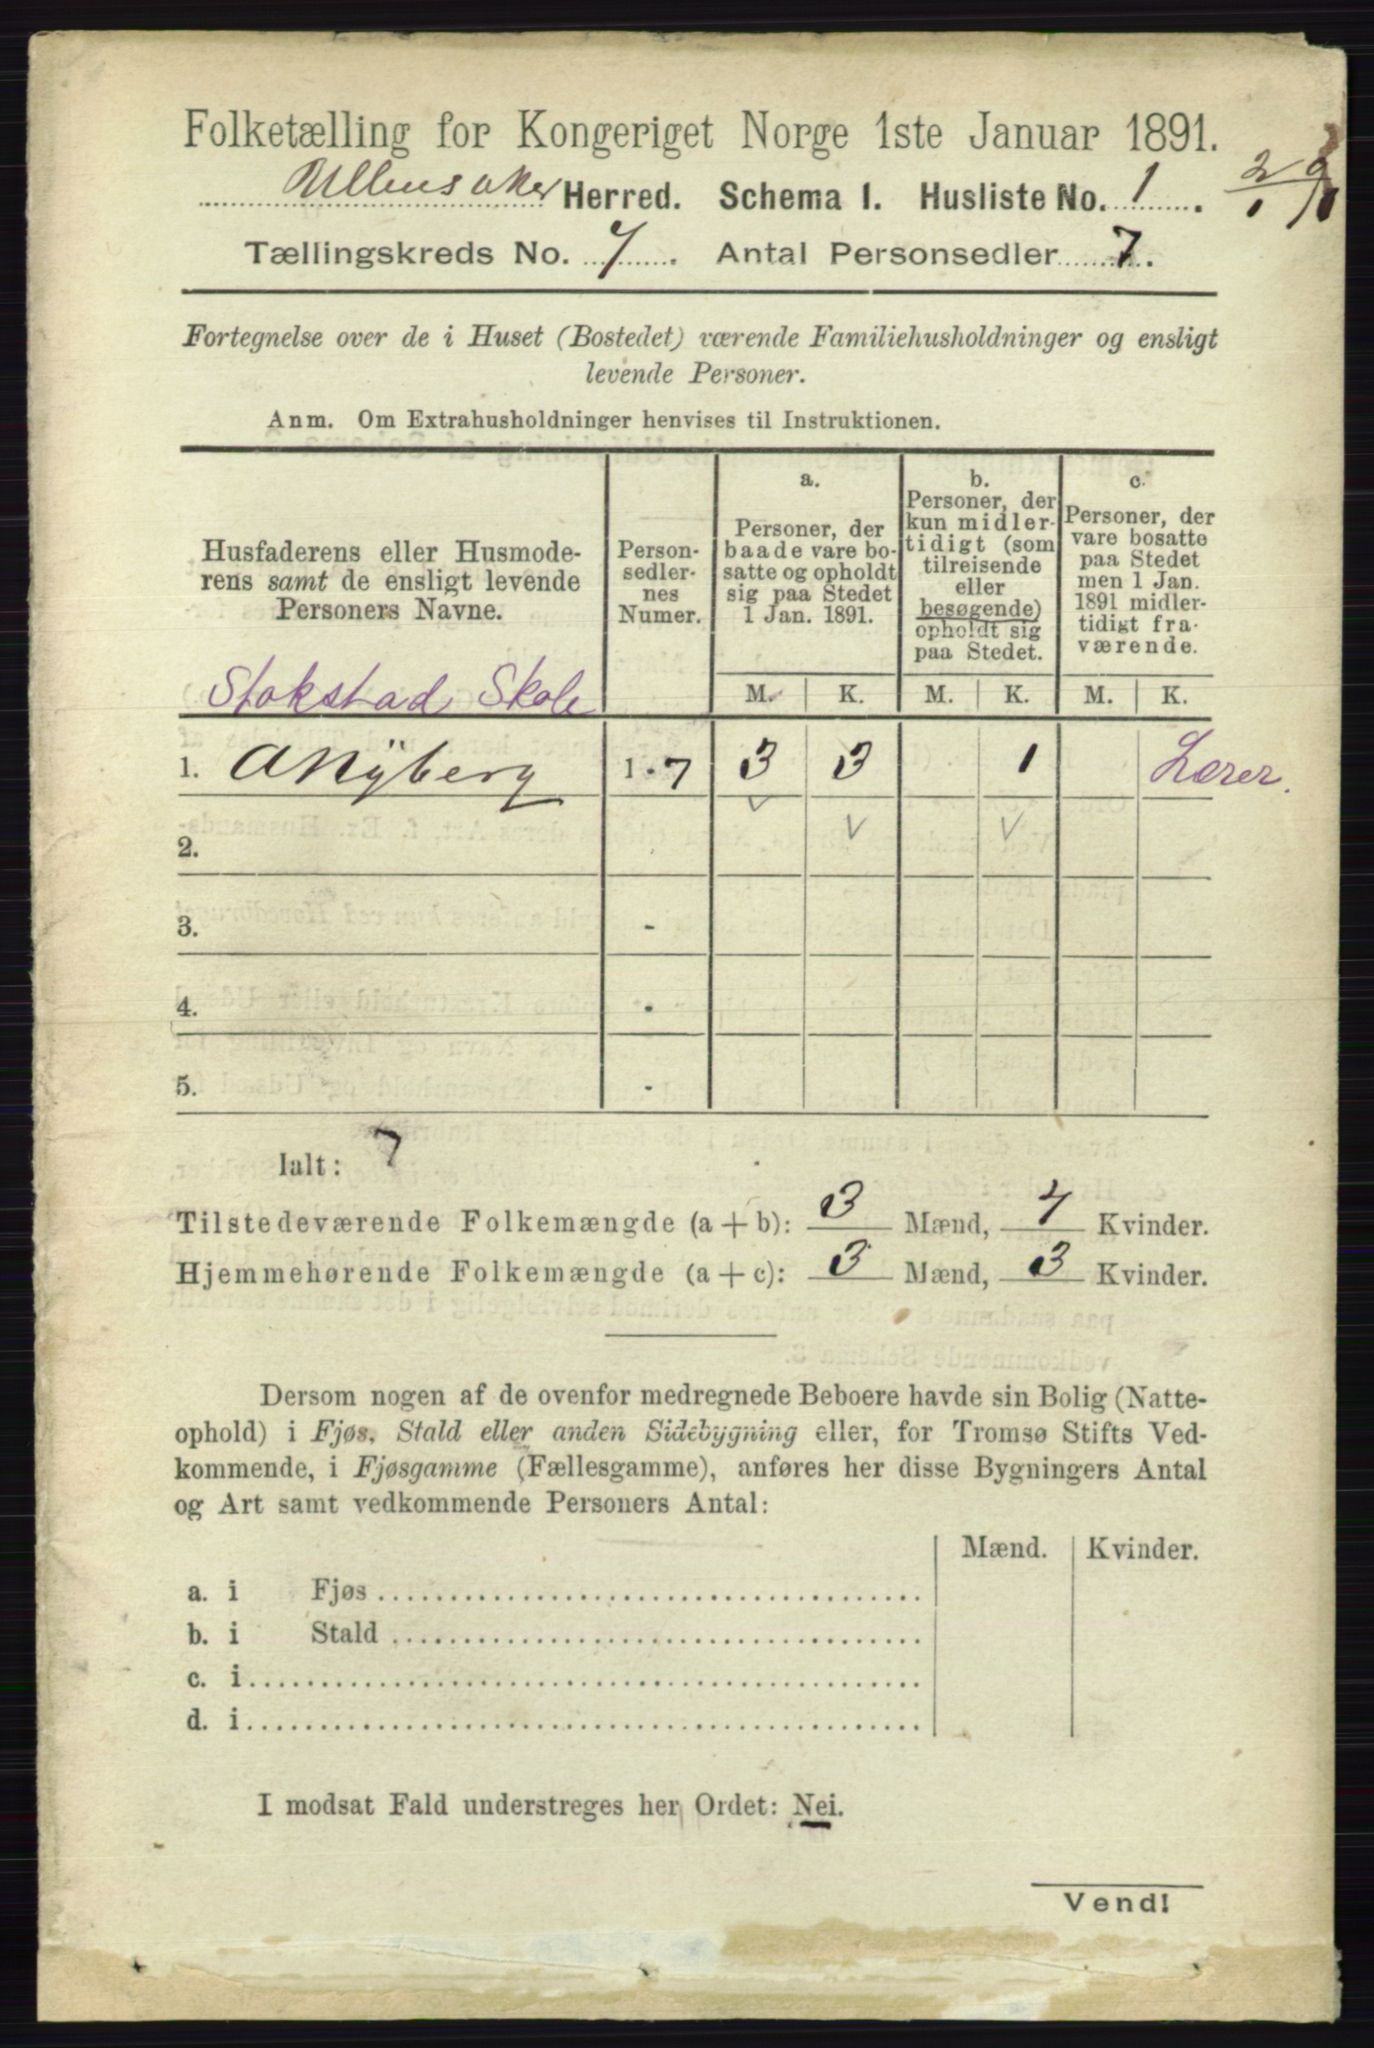 Folketælling for Kongeriget Norge 1ste Januar 1891.
Ullensaker Herred. Schema I. Husliste No. 1.
Tællingskreds No. 7. Antal Personsedler 7.
Fortegnelse over de i Huset (Bostedet) værende Familiehusholdninger og ensligt
levende Personer.
Anm. Om Extrahusholdninger henvises til Instruktionen.
Husfaderens eller Husmode-
rens samt de ensligt levende
Personers Navne.
Person-
sedler-
nes
Numer.
a.
Personer, der
baade vare bo-
satte og opholdt
sig paa Stedet
1 Jan. 1891.
b.
Personer, der
kun midler-
tidigt (som
tilreisende
eller
besøgende)
opholdt sig
paa Stedet.
c.
Personer, der
vare bosatte
paa Stedet
men 1 Jan.
1891 midler-
tidigt fra-
værende.
Stokstad Skole
M. K. M. K. M. K.
1. A Nÿberg 1 - 7 3 3 1 Lærer.
2.
3. -
4. -
5. -
Ialt: 7
Tilstedeværende Folkemængde (a + b): 3 Mænd, 4 Kvinder.
Hjemmehørende Folkemængde (a + c): 3 Mænd, 3 Kvinder.
Dersom nogen af de ovenfor medregnede Beboere havde sin Bolig (Natte-
ophold) i Fjøs, Stald eller anden Sidebygning eller, for Tromsø Stifts Ved-
kommende, i Fjøsgamme (Fællesgamme), anføres her disse Bygningers Antal
og Art samt vedkommende Personers Antal:
Mænd. Kvinder.
a. i Fjøs
b. i Stald
c. i
d. i
I modsat Fald understreges her Ordet: Nei.
Vend!